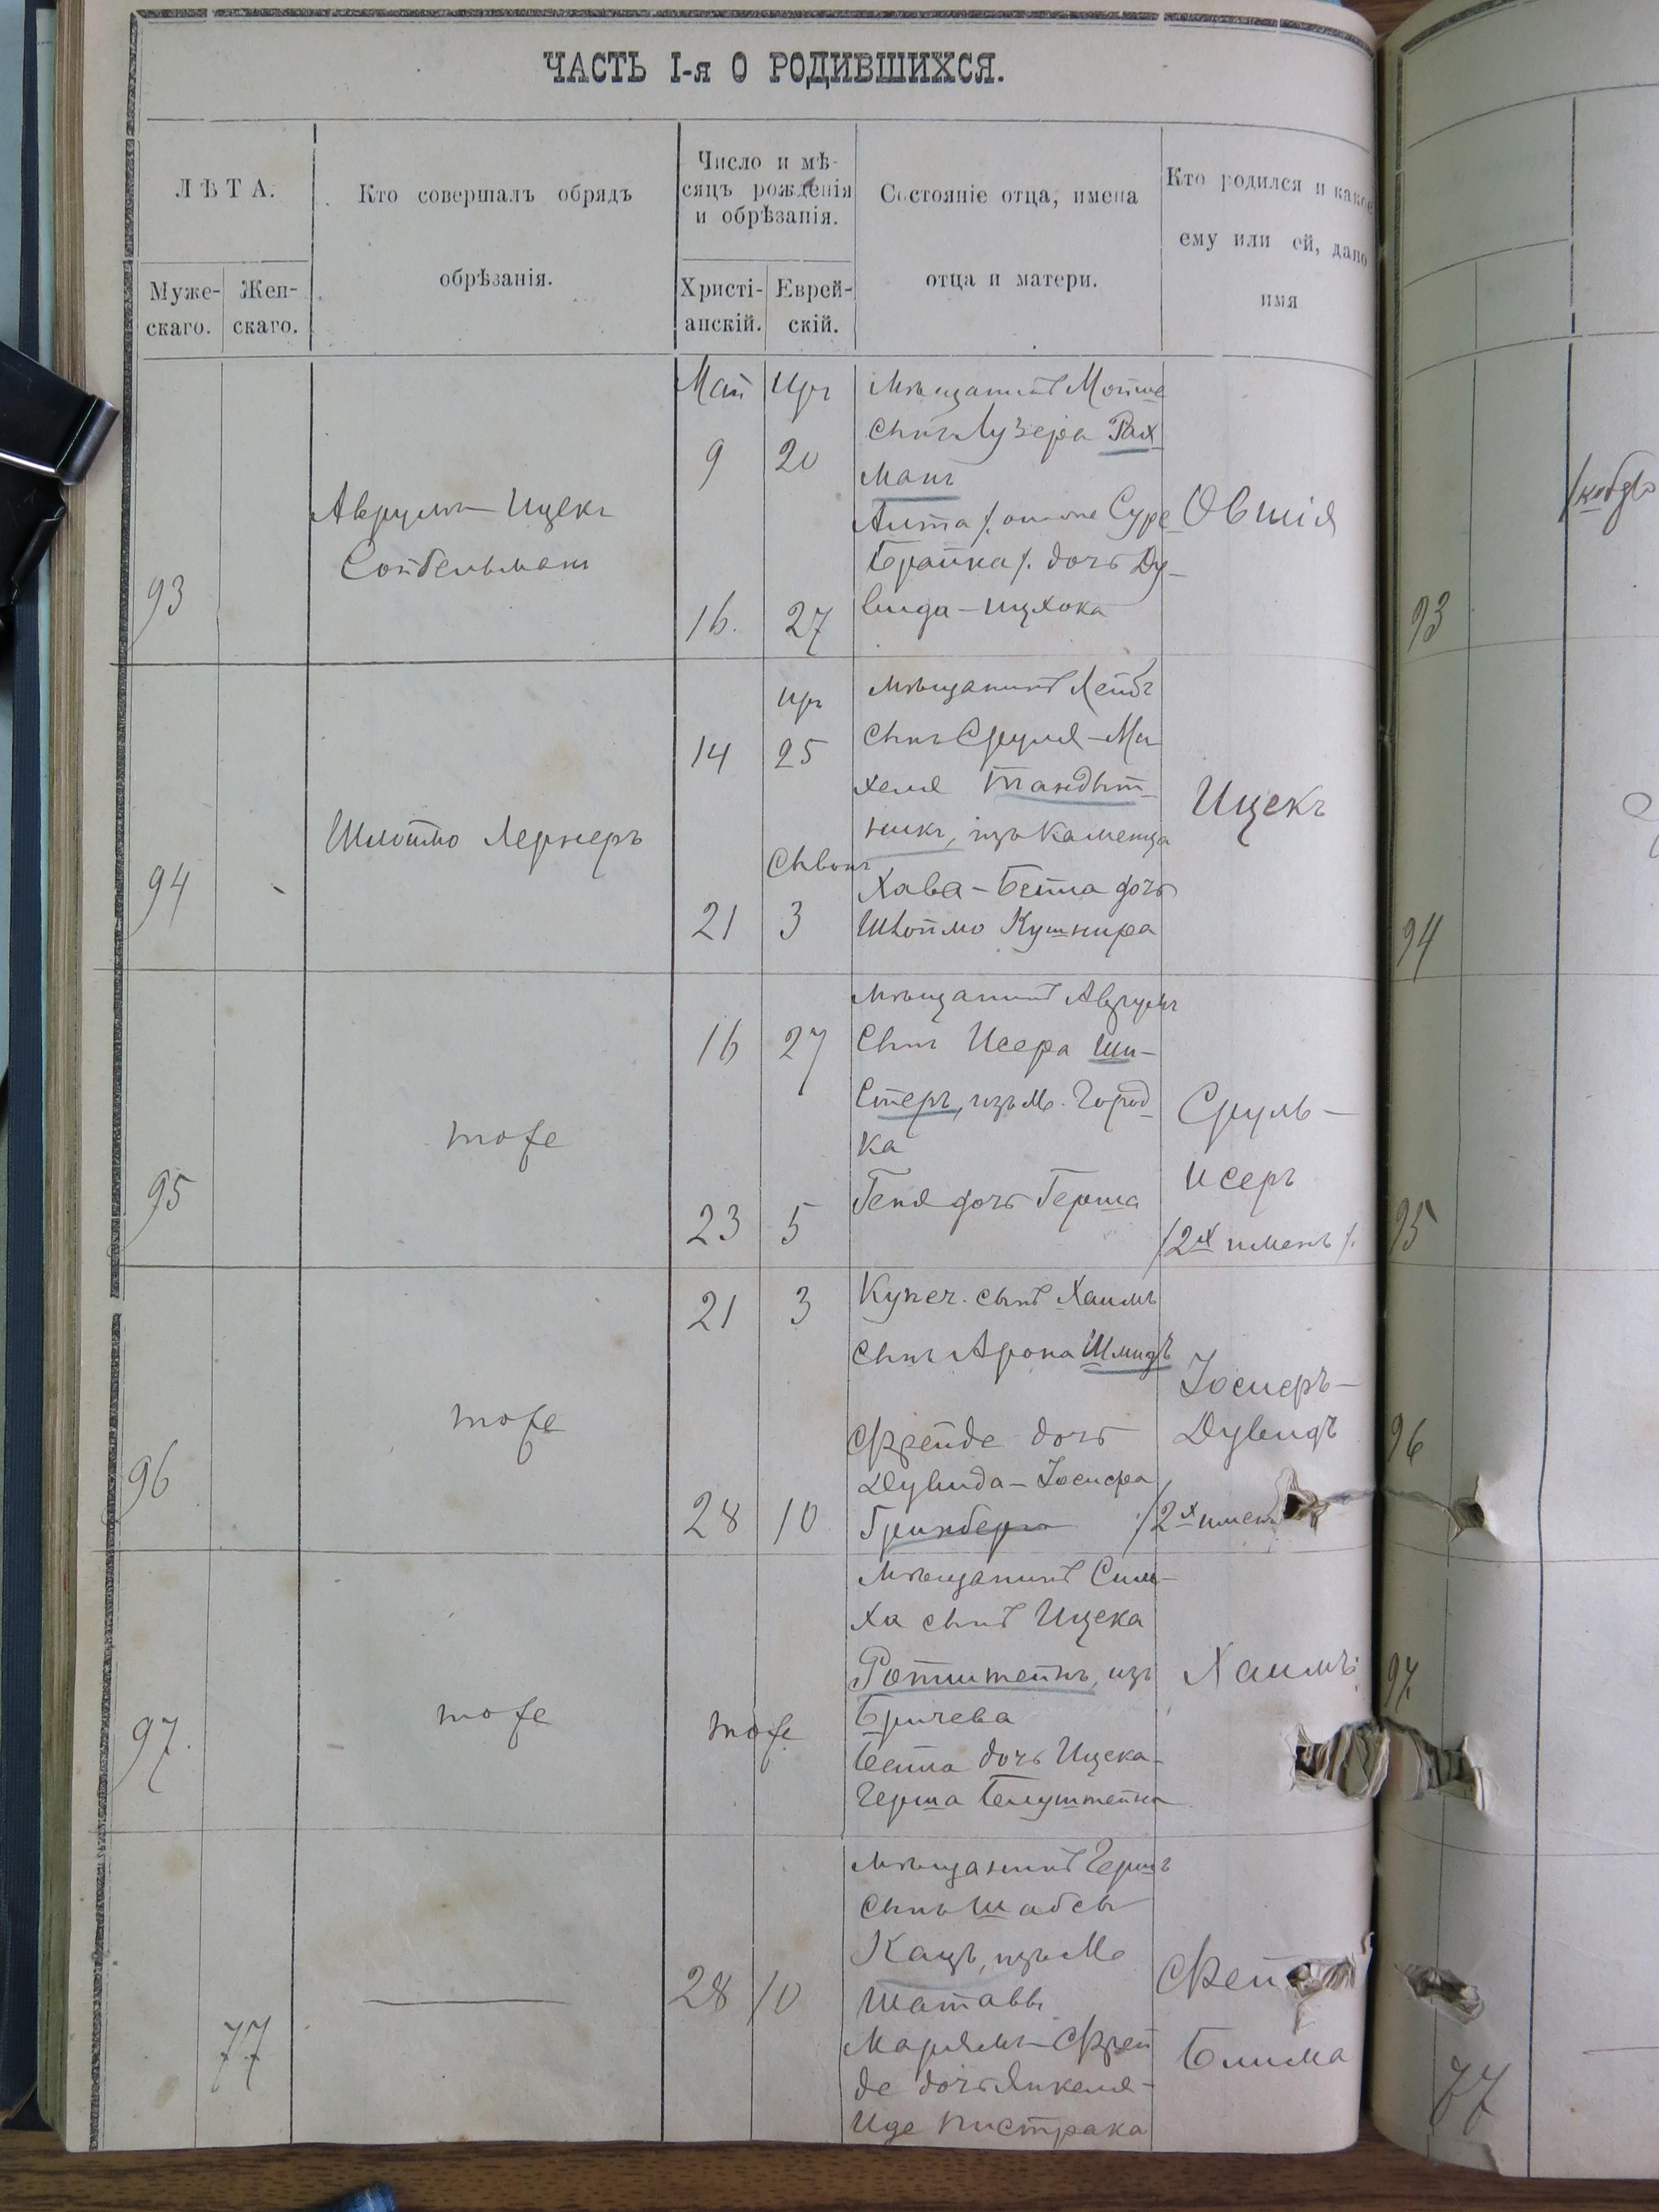 ЧАСТЬ I-я О РОДИВШИХСЯ.
ЛѢТА.
Муже-
скаго.
Жен-
скаго.
Кто совершалъ обрядъ
обрѣзанія.
Число и мѣ-
сяцъ рожденія
и обрѣзанія.
Христі-
анскій.
Еврей-
скій.
Состояніе отца, имена
отца и матери.
Кто родился и какое
ему или ей, дано
имя
93
Аврумъ-Ицекъ
Сойбельманъ
Май
9
16.
Иръ
20
27
Мѣщанинъ Мойше
сынъ Лузера Рах
манъ
Брайна /. дочь Ду-
вида-Ицхока
Овшія
93
94
Шлоймо Лернеръ
14
21
Иръ
25
Сывонъ
3
Мѣщанинъ Лейбъ
сынъ Сруля-Ми
хеля Тандыт-
никъ, изъ Каменца
Хава-Бейла дочь
Шлоймо Кушнира
Ицекъ
94
95
тоже
16
23
27
5
Мѣщанинъ Аврумъ
сынъ Исера Ши-
стеръ, изъ м. Город-
ка
Геня дочь Герша
Сруль-
Исеръ
/2х именъ/.
95
96
тоже
21
28
3
10
Купеч. сынъ Хаимъ
сынъ Арона Шмидъ
Фрейде дочь
Дувида-Іосифа
Гринберга
Іосифъ-
Дувидъ
/2х имен
96
97.
тоже
тоже
Мѣщанинъ Сим-
ха сынъ Ицека
Ротштейнъ, изъ
Бричева
Бейла дочь Ицека-
Герша
Хаимъ.
97.
77
28
10
Мѣщанинъ Гершъ
сынъ Шабсы
Кацъ, изъ м.
Шатавы
Марьямъ-Фрей
де дочь Янкеля-
Иде Пистрака
Фей
Блима
77